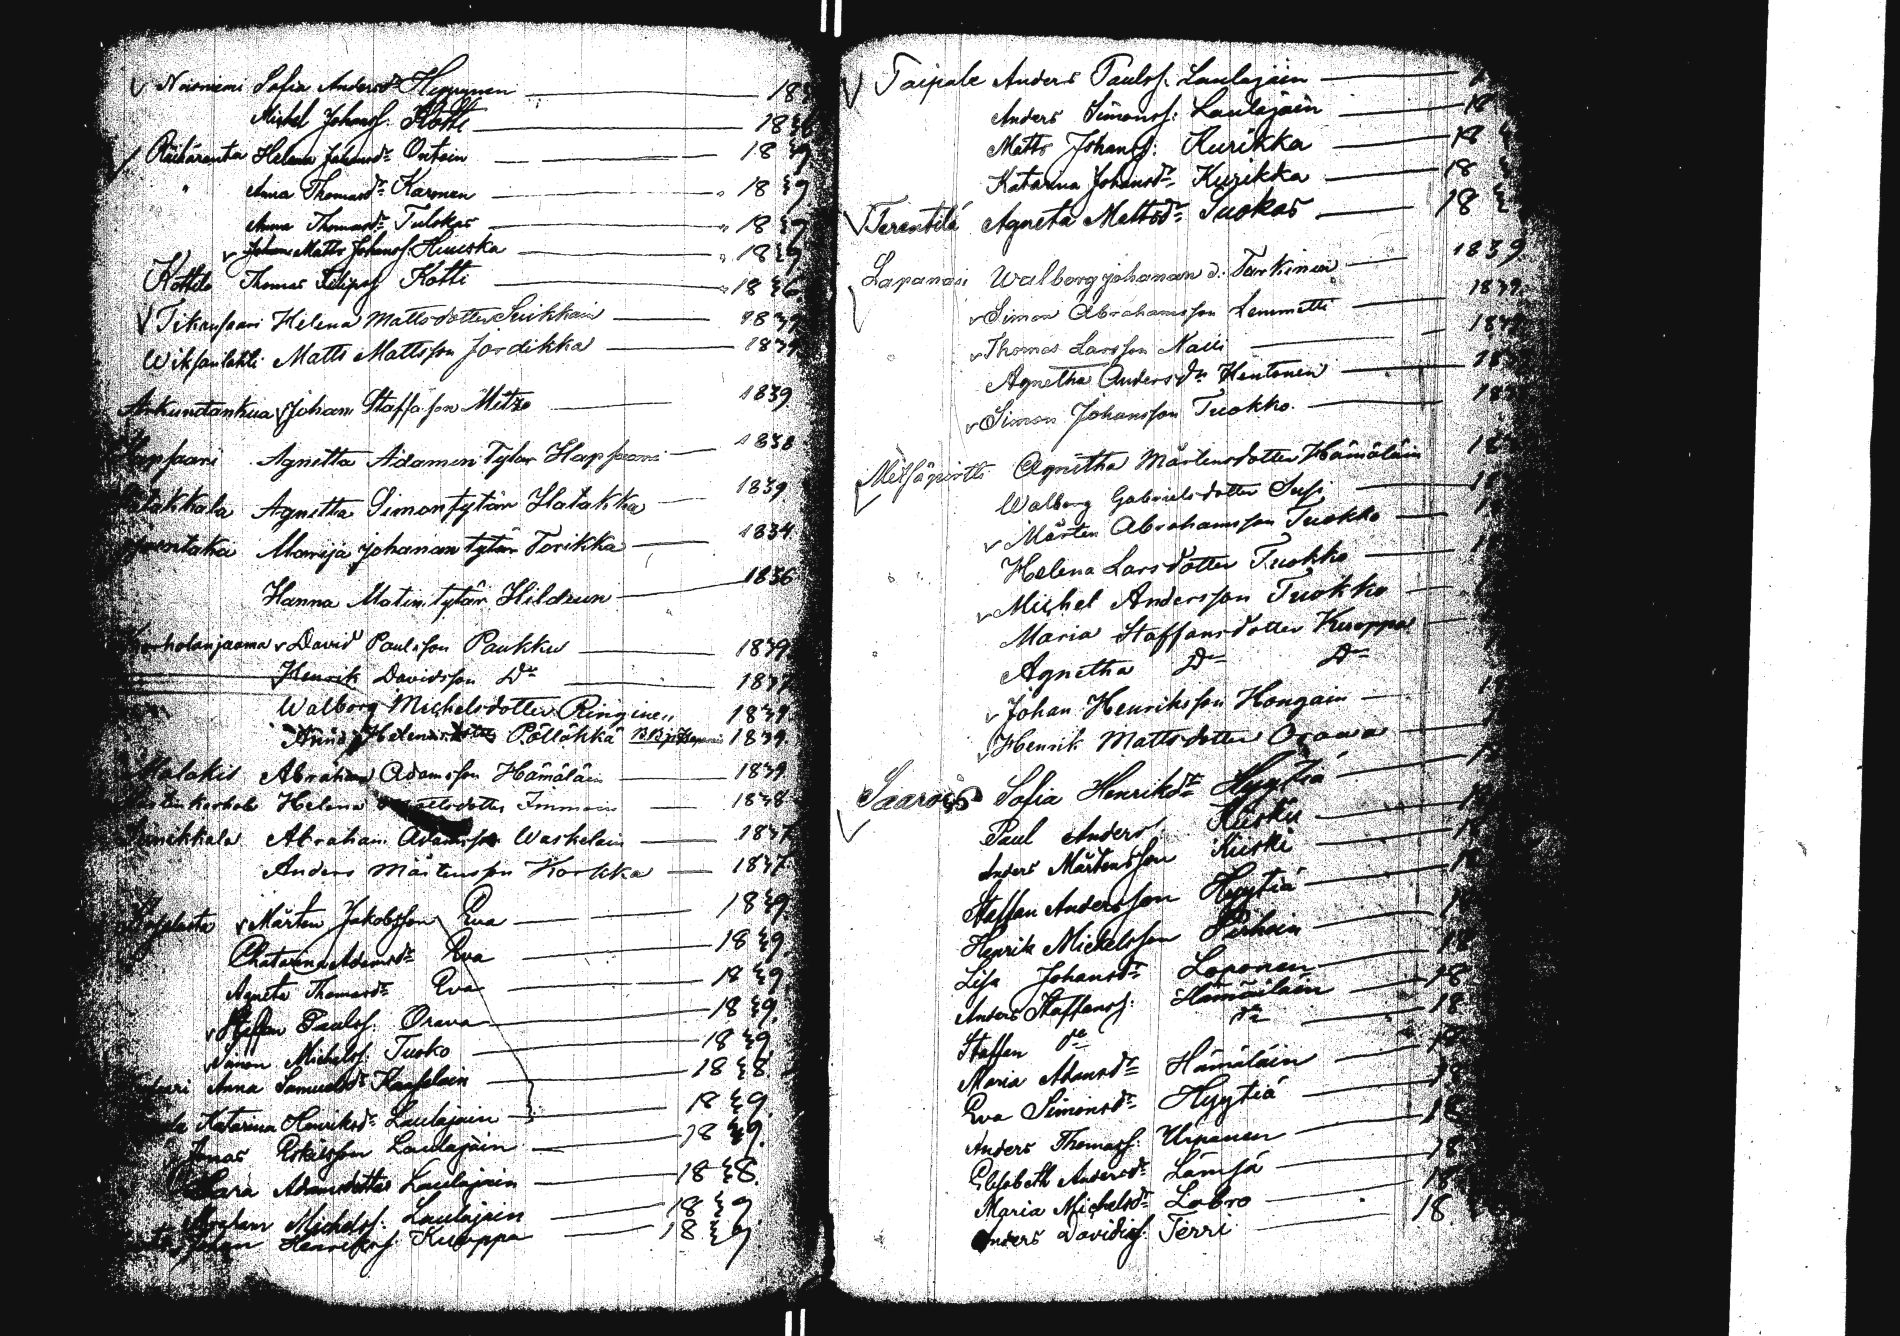 Noisniemi Sofia Andersdr Heppynen 18
Michel Johanss. Kotti 1836
Riiskäranta Helena Johansdr Ontoin 1839
" Anna Thomasdr Karonen 1839
Anna Thomasdr Tulokas 1839
Johan Matts Johanss. Huuska 1839
Kottilo Thomas Filipss. Kotti 1836
Tikansaari Helena Mattsdotter Suikkain 1839
Wiksanlahti Matts Mattsson Jordikka 1839
Arkuntankua Johan Staffasson Mitzo 1839
Hapsaari Agnetta Adamin tytar Hapsaari 1838
Hatakkala Agnetta Simon tytär Hatakka 1839
Marija Johanan tytär Torikka 1834
Hanna Matin tytär Hildeun 1836
David Paulsson Paukku 1839
Henrik Davidsson Dr 1837
Walborg Michelsdotter Ringinen 1839
Anna Helena Pöllökkä 1839
Malakis Abraham Adamsson Hämäläin 1839
Helena Mattsdotter Immoin 1838
Abraham Adamsson Waskelain 1837
Anders Mårtensson Korkka 1837
Mårten Jakobsson Eva 1839
Chatarina Adamsdr Eva 1839
Agneta Thomasdr Eva 1839
Steffan Paulss. Orava 1839
Simon Michelss. Tuoko 1839
Anna Samuelsdr Kaasalain 1838
Katarina Henriksdr Laulajain 1839
Jonas Eskilsson Laulajain 1839
Sara Adamsdotter Laulajain 1838
Abraham Michelss. Laulajain 1839
Johan Henrikss. Kuoppa 1839
Taipale Anders Paulss. Laulajain
Anders Simonss. Laulajain 18
Matts Johanss. Kurikka 18
Katarina Johansdr Kurikka 18
Terentilä Agneta Mattsdr Suokas 18
Lapanais Walborg Johanan d. Turkinen 1839
Simon Abrahamsson Lemmetti 1839
Thomas Larsson Naili 1839
Agnetha Andersdr Hentonen 183
Simon Johansson Tuokko 183
Metsäpirtti Agnetha Mårtensdotter Hämäläin 18
Walborg Gabrielsdotter Susi 18
Mårten Abrahamsson Tuokko 18
Helena Larsdotter Tuokko
Michel Andersson Tuokko
Maria Staffansdotter Kuoppa
Agnetha Dr Dr
Johan Henriksson Hongain
Henrik Mattsdotter Orava
Saarois Sofia Henriksdr Hyytiä
Paul Anderss. Kiiski
Anders Mårtensson Kiiski
Staffan Andersson Hyytiä
Henrik Mickelsson Pirhoin
Lisa Johansdr Loponen 18
Anders Staffanss. Hämäläin 18
Staffan de de 18
Maria Adamsdr Hämäläin 18
Eva Simonsdr Hyytiä 18
Anders Thomass. Urpanen 18
Elisabeth Andersdr Lämsä 18
Maria Michelsdr Lobro 18
Anders Davidss. Terri 18